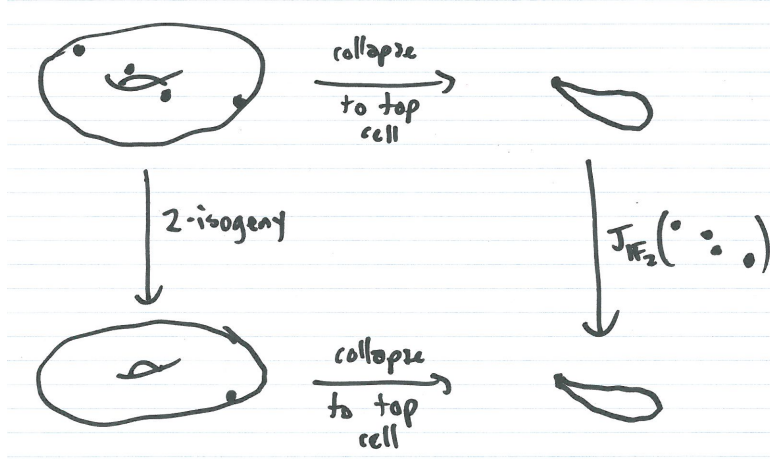 collapse
to top
cell
2-isogeny
J_{F_2}( )
collapse
to top
cell